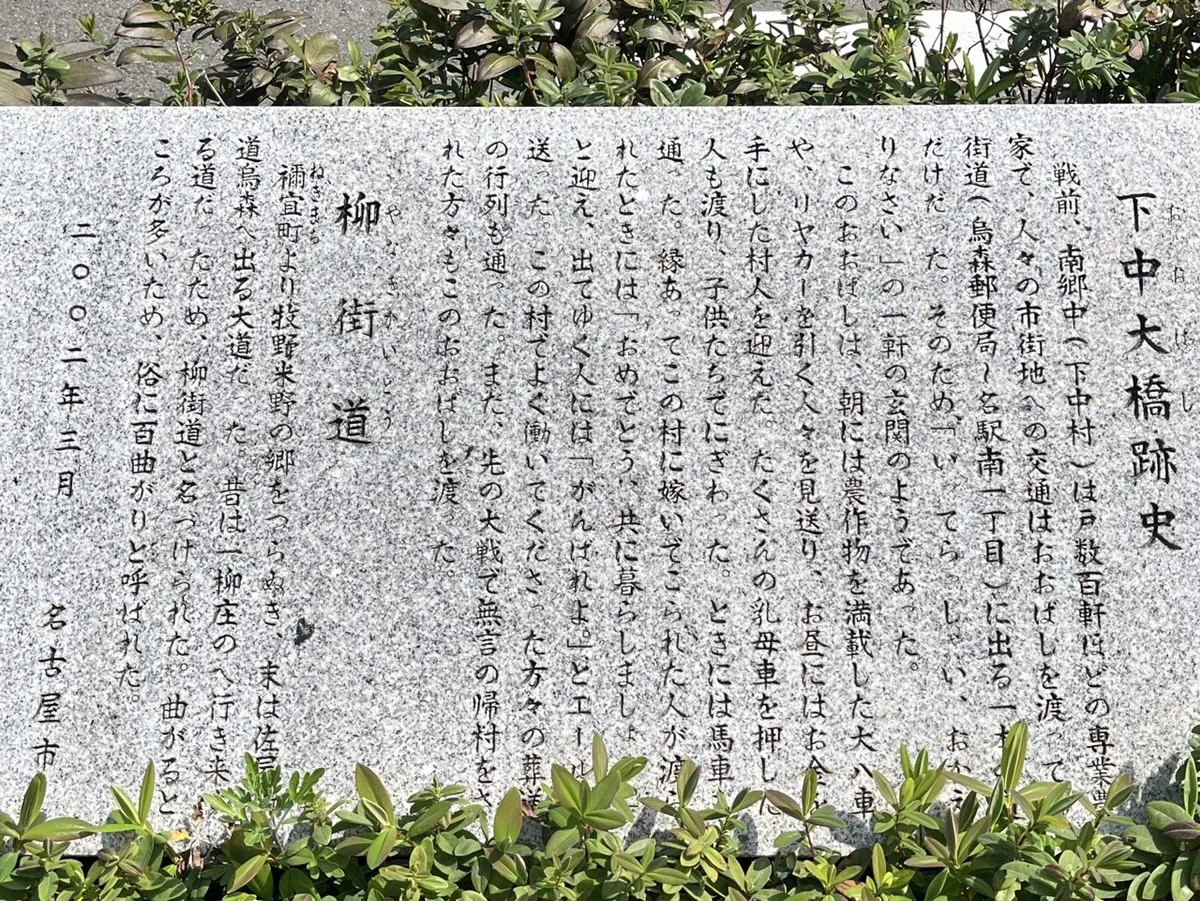 下中大橋跡史
おおばし
戦前、南郷中(下中村)は戸数百軒ほどの専業農
家で、人々の市街地への交通はおおばしを渡って
街道(烏森郵便局〜名駅南一丁目)に出る一
だけだった。そのため、「いってらっしゃい、おかえ
りなさい」の一軒の玄関のようであった。
このおおばしは、朝には農作物を満載した大八車
や、リヤカーを引く人々を見送り、お昼にはお金を
手にした村人を迎えた。たくさんの乳母車を押した
人も渡り、子供たちでにぎわった。ときには馬車
通った。縁あってこの村に嫁いでこられた人が渡ら
れたときには「おめでとう、共に暮らしましょ
と迎え、出てゆく人には「がんばれよ。」とエール
送った。この村でよく働いてくださった方々の葬送
の行列も通った。また、先の大戦で無言の帰村をさ
れた方々もこのおおばしを渡った。
柳街道
やなぎかいどう
禰宜町より牧野米野の郷をつらぬき、末は佐屋
道烏森へ出る大道だった。昔は一柳庄のへ行き来
る道だったため、柳街道と名づけられた。曲がると
ころが多いため、俗に百曲がりと呼ばれた。
二〇〇二年三月
名古屋市